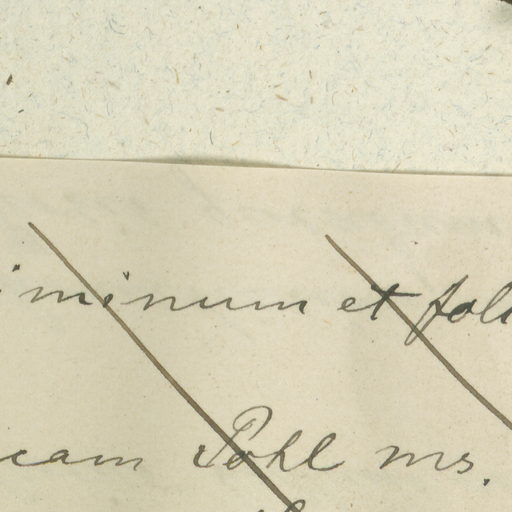 iminum et foli
icam Pohl ms.